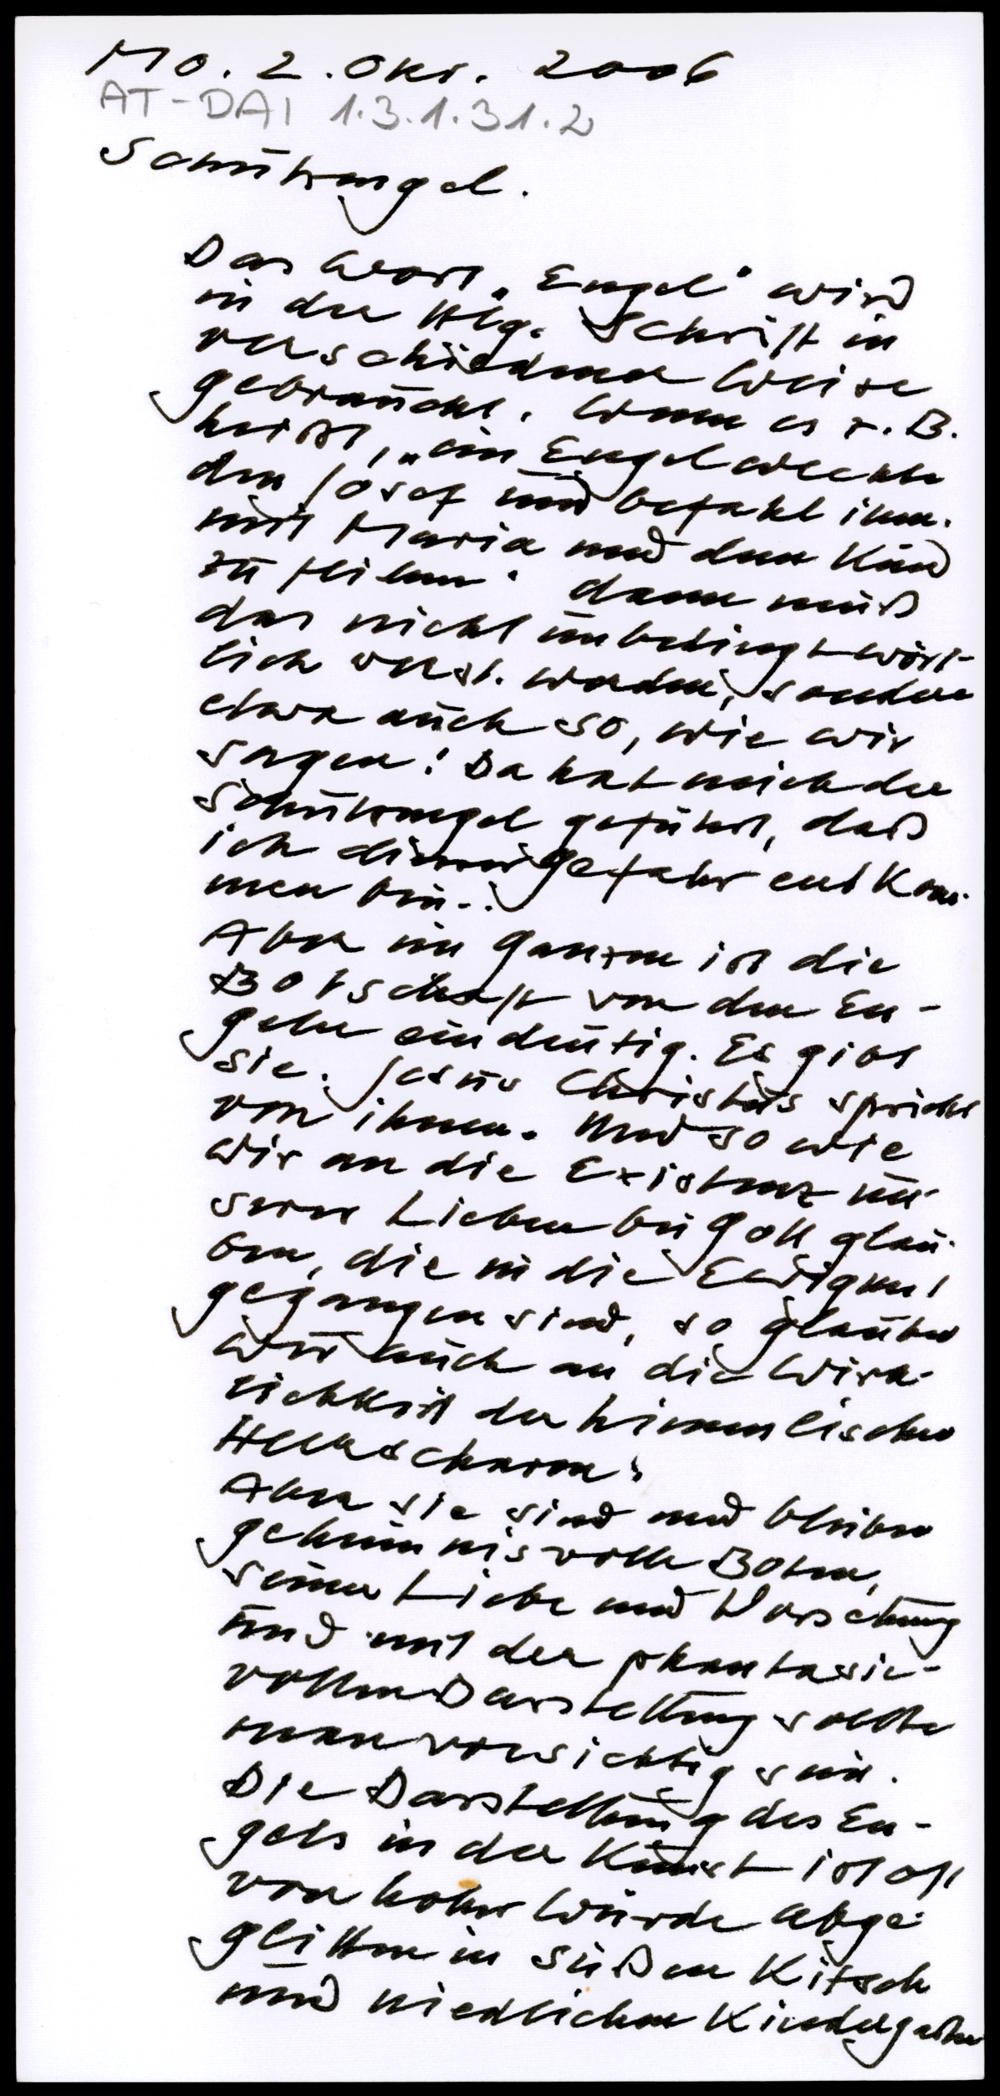 Mo. 2. Okt. 2006
AT-DAI 1.3.1.31.2
Schutzengel.
Das Wort „Engel“ wird
in der Hlg. Schrift in
verschiedener Weise
gebraucht. Wenn es z. B.
heißt, „ein Engel weckte
den Josef und befahl ihm.
mit Maria und dem Kind
zu fliehen“ dann muß
das nicht unbedingt wört-
lich verst. werden, sondern
etwa auch so, wie wir
sagen: Da hat mich der
Schutzengel geführt, daß
ich dieser Gefahr entkom-
men bin..
Aber im Ganzen ist die
Botschaft von den En-
geln eindeutig. Es gibt
sie. Jesus Christus spricht
von ihnen. Und so wie
wir an die Existenz un-
serer Lieben bei Gott glau-
ben, die in die Ewigkeit
gegangen sind, so glauben
wir auch an die Wirk-
lichkeit der himmlischen
Heerscharen.
Aber sie sind und bleiben
geheimnisvolle Boten,
seiner Liebe und Vorsehung
und mit der phantasie-
vollen Darstellung sollte
man vorsichtig sein.
Die Darstellung des En-
gels in der Kunst ist oft
von hoher Würde abge-
glitten in süßen Kitsch
und niedlichen Kindergarten